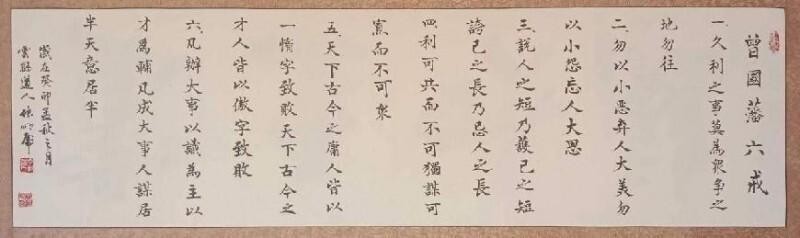 曾國藩六戒
一、久利之事莫為衆争之
地勿往
二、勿以小惡弃人大美勿
以小怨忘人大恩
三、說人之短乃護己之短
誇己之長乃忌人之長
四、利可共而不可獨謀可
寡而不可衆
五、天下古今之庸人皆以
一惰字致敗天下古今之
才人皆以傲字致敗
六、凡辦大事以識為主以
才為輔凡成大事人謀居
半天意居半
歲在癸卯孟秋之月
雲道人徐